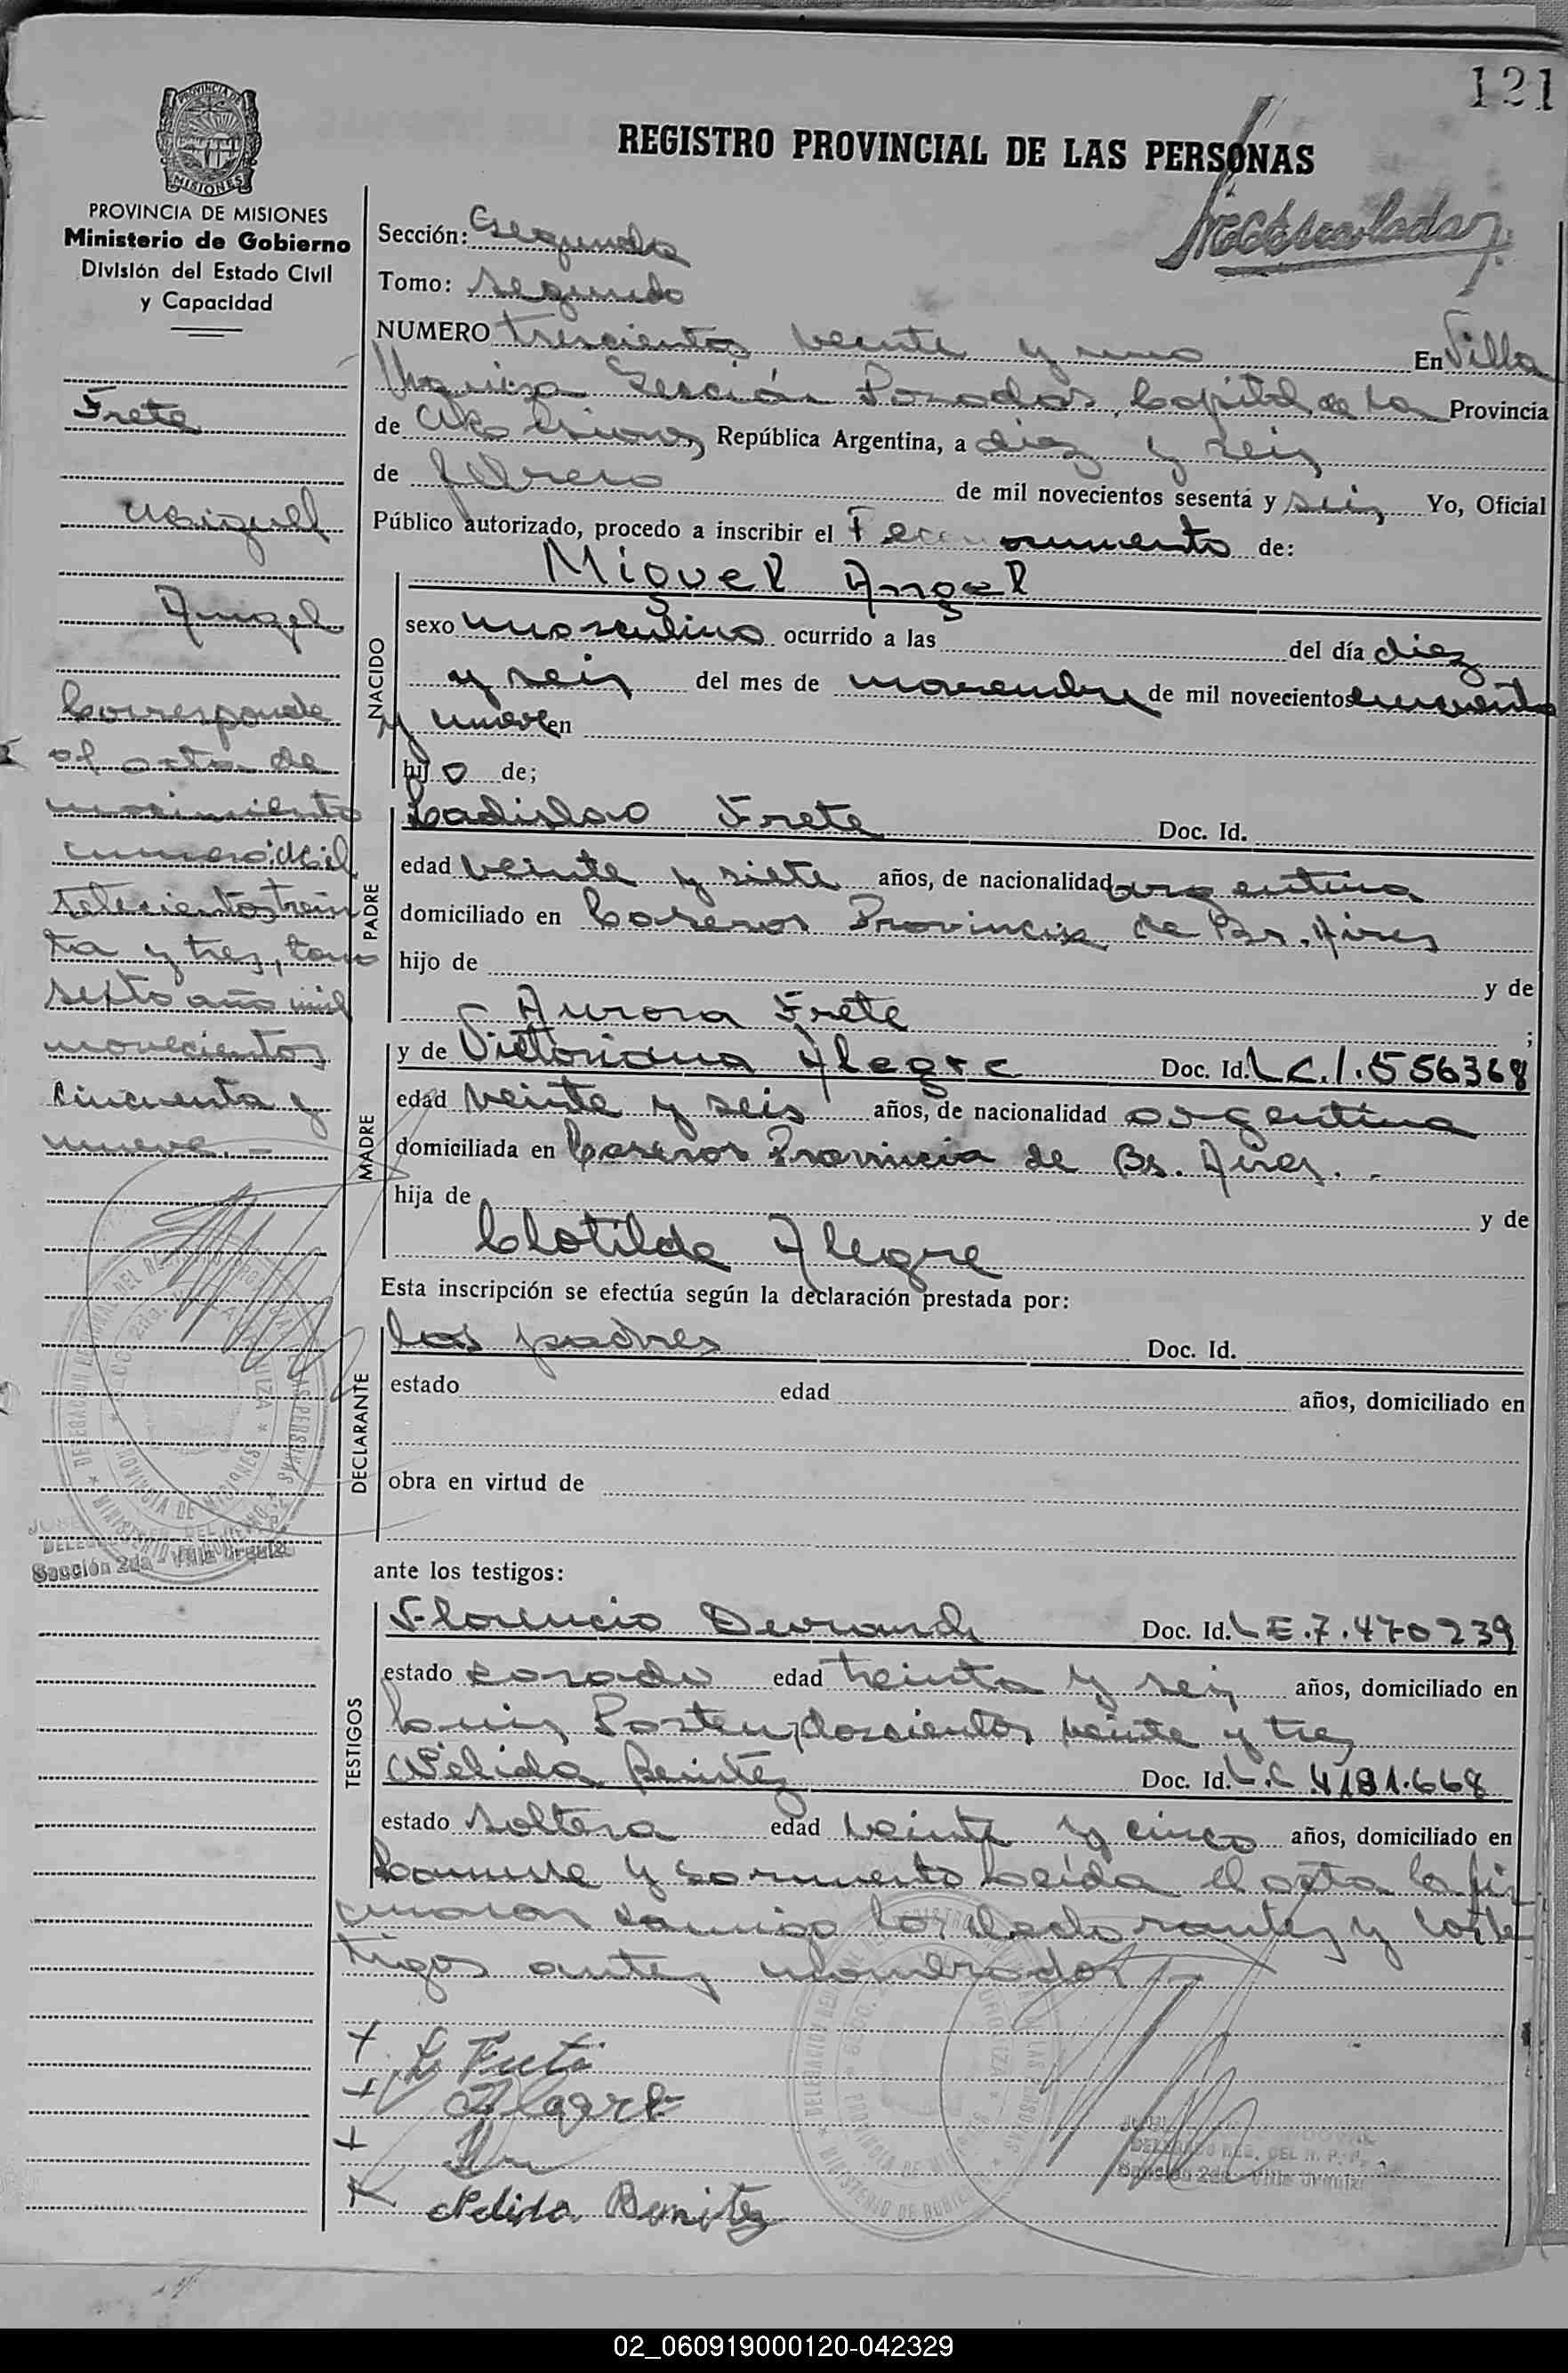 121
REGISTRO PROVINCIAL DE LAS PERSONAS
PROVINCIA DE
MISIONES
PROVINCIA DE MISIONES
Ministerio de Gobierno
División del Estado Civil
y Capacidad
Frete
Miguel
Angel
Corresponde
al acta de
nacimiento
numero: Mil
setecientos trein
ta y tres, tomo
sexto año mil
novecientos
cincuenta y
nueve. -
Sección 2da Villa Urquiza
Sección: segunda
Tomo: segundo
NUMERO trescientos veinte y uno En Villa
Urquiza Sección Posadas, Capital de la Provincia
de Misiones, República Argentina, a diez y seis
de febrero de mil novecientos sesenta y seis Yo, Oficial
Público autorizado, procedo a inscribir el reconocimiento de:
NACIDO
Miguel Angel
sexo masculino ocurrido a las del día diez
y seis del mes de noviembre de mil novecientos cincuenta
y nueve en
hijo de;
PADRE
Ladislao Frete Doc. Id.
edad veinte y siete años, de nacionalidad argentina
domiciliado en Caseros Provincia de Bs. Aires
hijo de y de
Aurora Frete ;
MADRE
y de Victoriana Alegre Doc. Id. L C. 1.556368
edad veinte y seis años, de nacionalidad argentina
domiciliada en Caseros Provincia de Bs. Aires. -
hija de y de
Clotilde Alegre
Esta inscripción se efectúa según la declaración prestada por:
DECLARANTE
los padres Doc. Id.
estado edad años, domiciliado en
obra en virtud de
ante los testigos:
TESTIGOS
Florencio Doc. Id. L E.7.470239
estado casado edad treinta y seis años, domiciliado en
Luis Pasteur, doscientos veinte y tres
Nélida Benitez Doc. Id. L.C 4181.668
estado soltera edad veinte y cinco años, domiciliado en
y sarmiento Leída el acta la fir
maron conmigo los declarantes y los tes
tigos antes nombrados. -
L Frete
V Alegre
Nelida Benitez
Sección 2da Villa Urquiza
02_060919000120-042329